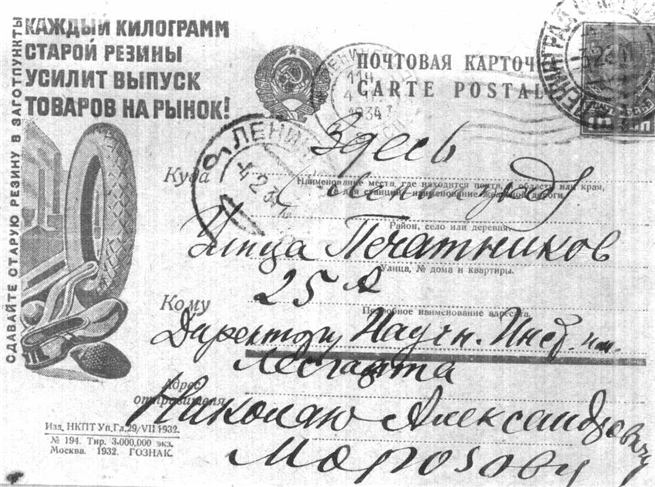 КАЖДЫЙ КИЛОГРАММ
СТАРОЙ РЕЗИНЫ
УСИЛИТ ВЫПУСК
ТОВАРОВ НА РЫНОК!
СДАВАЙТЕ СТАРУЮ РЕЗИНУ В ЗАГОТПУНКТЫ
ПОЧТОВАЯ КАРТОЧ
CARTE POSTAL
ЛЕНИНГРАД
1934
ЛЕНИН
4 2 34
Здесь
Куда Ленинград
Наименование места, где находится почта, и область или край,
а для станций наименование железной дороги.
Улица Печатников
Район, село или деревня.
Улица, № дома и квартиры.
25 А
Кому
Подробное наименование адресата.
Директору Научн. Инст. им.
Лесгафта
Адрес
отправителя
Николаю Александровичу
Морозову
Изд. НКПТ Уп. Гл. 29/VII 1932.
№ 194. Тир. 3.000.000 экз.
Москва. 1932. ГОЗНАК.